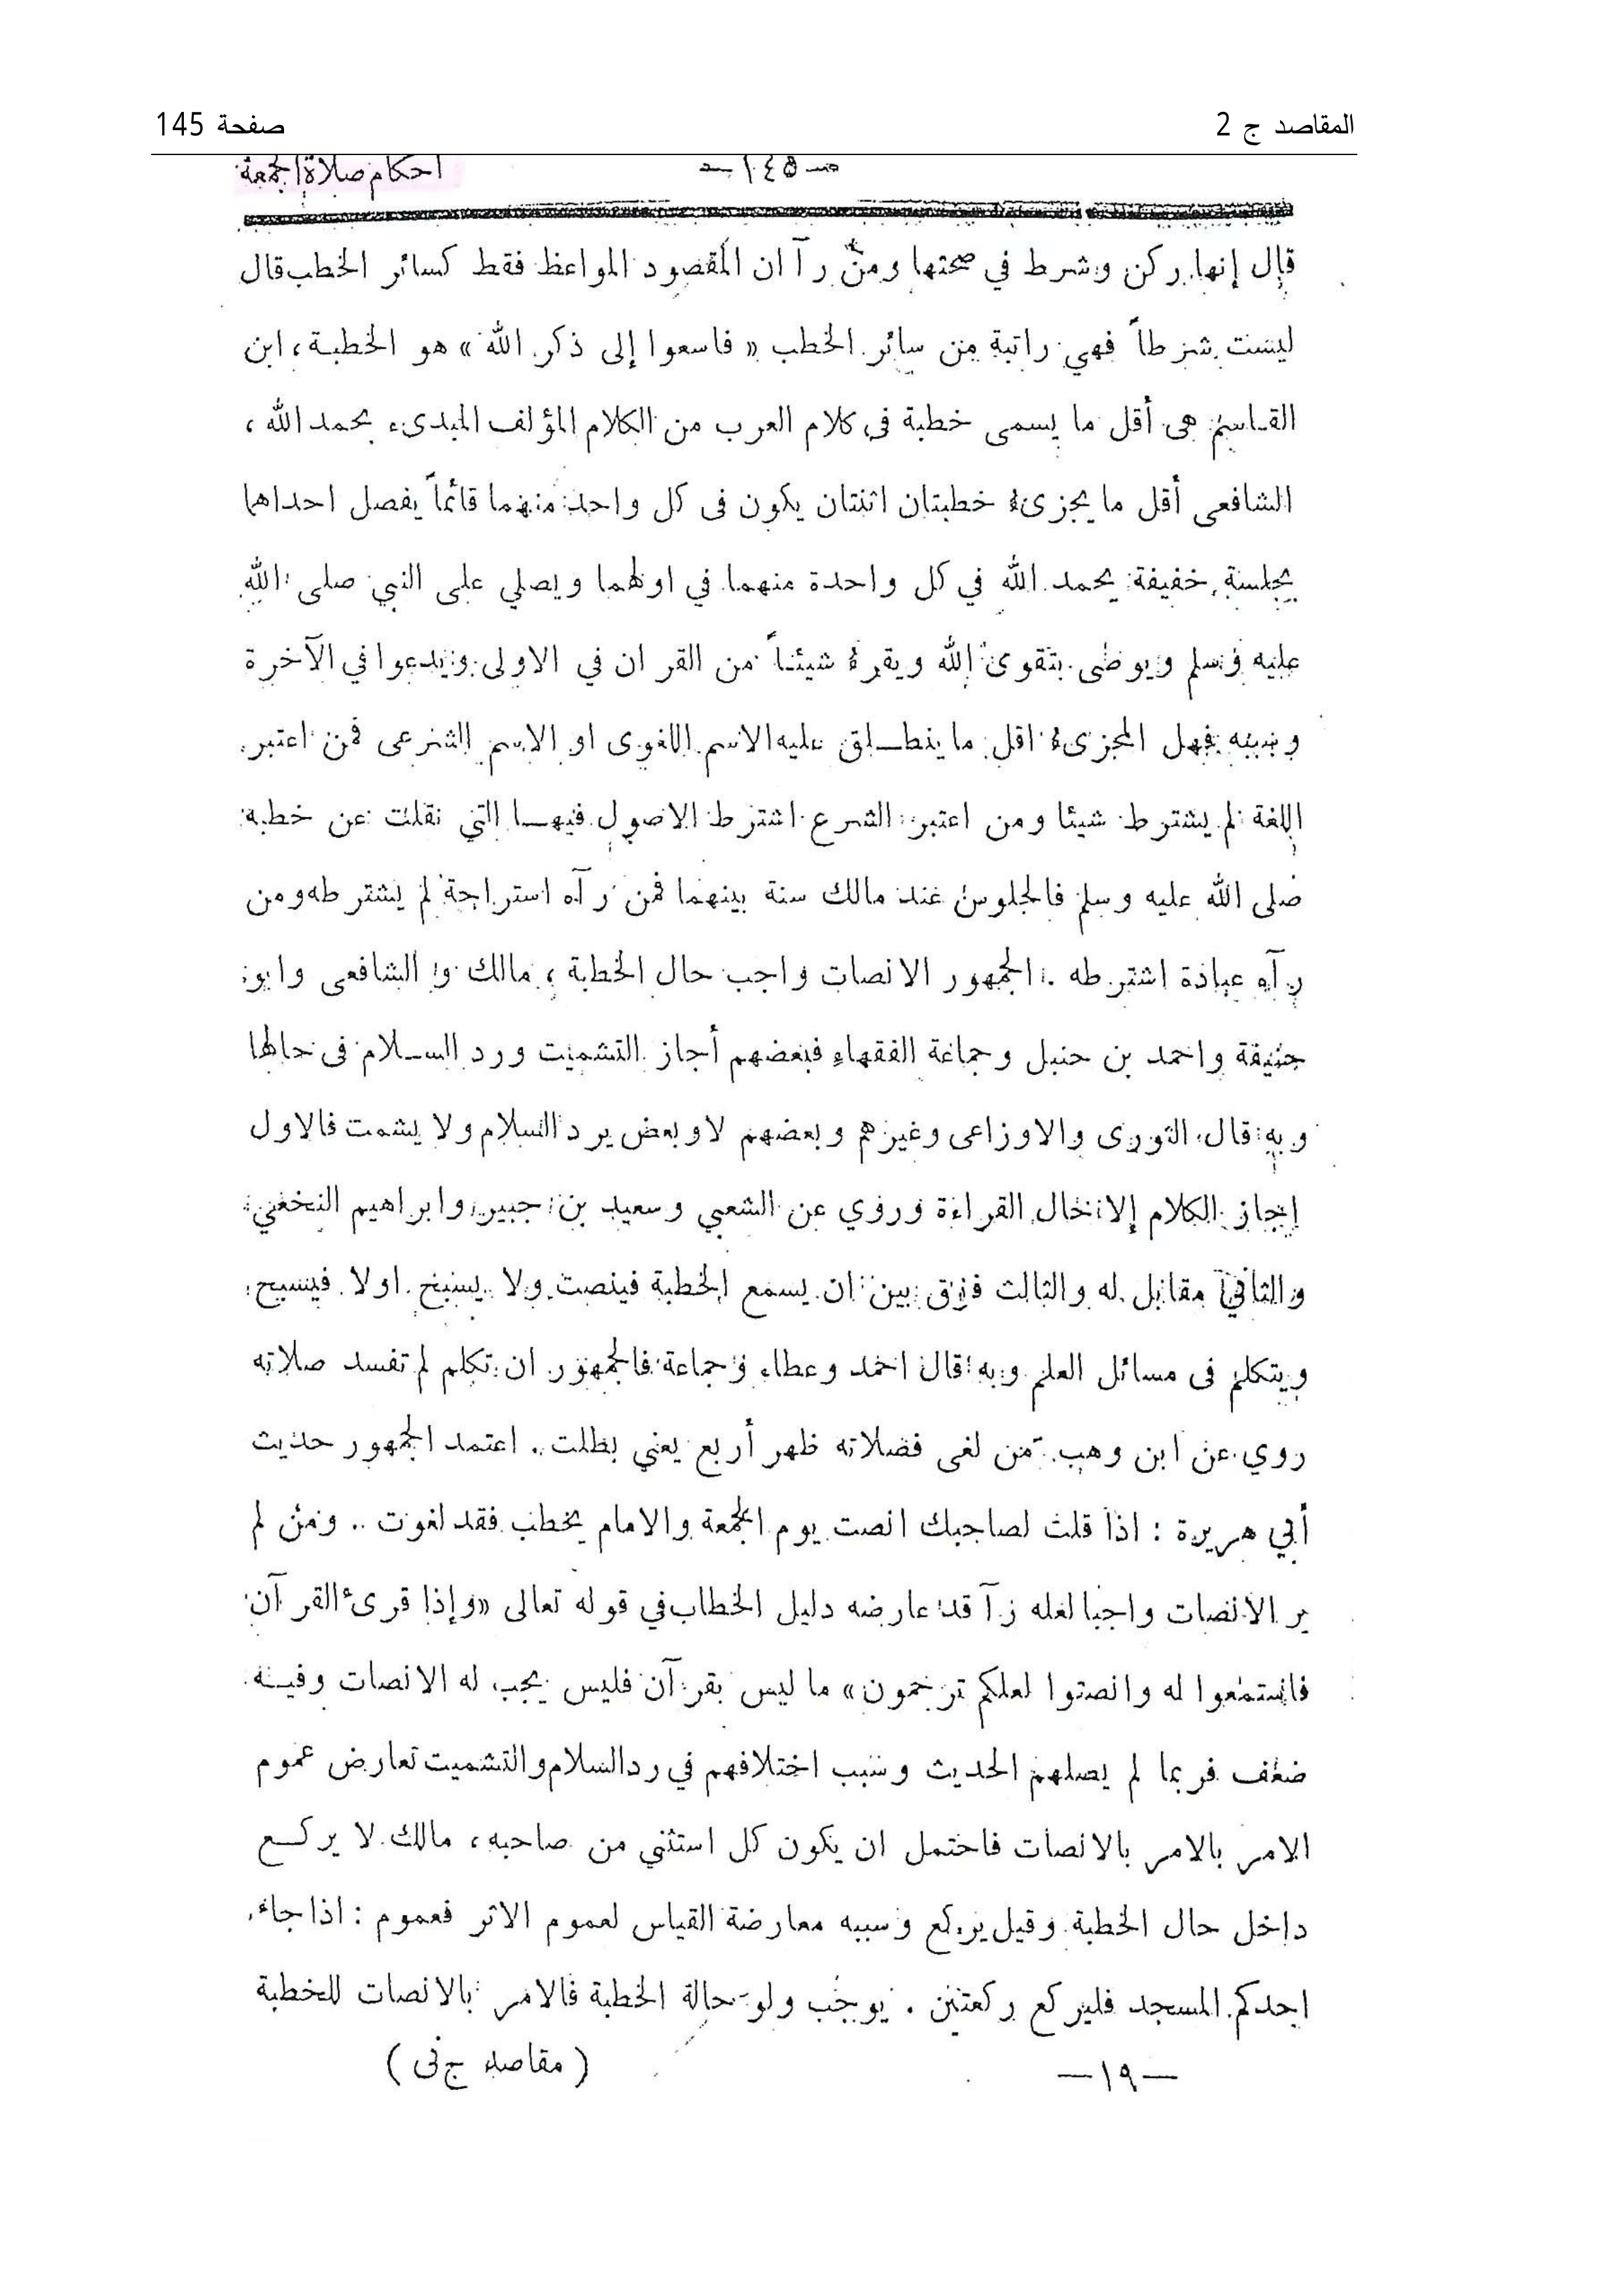 المقاصد ج 2
صفحة 145
احكام صلاة الجمعة
— ١٤٥ —
قال إنها ركن وشرط في صحتها ومن رآ ان المقصود المواعظ فقط كسائر الخطب قال
ليست شرطاً فهي راتبة من سائر الخطب « فاسعوا إلى ذكر الله » هو الخطبة، ابن
القاسم هى أقل ما يسمى خطبة فى كلام العرب من الكلام المؤلف المبدىء بحمد الله ،
الشافعى أقل ما يجزىء خطبتان اثنتان يكون فى كل واحد منهما قائماً يفصل احداهما
بجلسة خفيفة يحمد الله في كل واحدة منهما في اولهما ويصلي على النبي صلى الله
عليه وسلم ويوصى بتقوى الله ويقرء شيئاً من القران في الاولى ويدعوا في الآخرة
وسببه فهل المجزىء اقل ما ينطلق عليه الاسم اللغوى او الاسم الشرعى فمن اعتبر
اللغة لم يشترط شيئا ومن اعتبر الشرع اشترط الاصول فيها التي نقلت عن خطبه
صلى الله عليه وسلم فالجلوس عند مالك سنة بينهما فمن رآه استراحة لم يشترطه ومن
رآه عبادة اشترطه . الجمهور الانصات واجب حال الخطبة ، مالك والشافعى وابو
حنيفة واحمد بن حنبل وجماعة الفقهاء فبعضهم أجاز التشميت ورد السلام فى حالها
وبه قال الثورى والاوزاعى وغيرهم وبعضهم لا وبعض يرد السلام ولا يشمت فالاول
إجاز الكلام إلا حال القراءة وروي عن الشعبي وسعيد بن جبير وابراهيم النخعي
والثاني مقابل له والثالث فرق بين ان يسمع الخطبة فينصت ولا يسبح اولا فيسبح
ويتكلم فى مسائل العلم وبه قال احمد وعطاء وجماعة فالجمهور ان تكلم لم تفسد صلاته
روي عن ابن وهب من لغى فصلاته ظهر أربع يعني بطلت . اعتمد الجمهور حديث
أبي هريرة : اذا قلت لصاحبك انصت يوم الجمعة والامام يخطب فقد لغوت .. ومن لم
ير الانصات واجبا لعله رآ قد عارضه دليل الخطاب في قوله تعالى «وإذا قرىء القرآن
فاستمعوا له وانصتوا لعلكم ترحمون» ما ليس بقرآن فليس يجب له الانصات وفيه
ضعف فربما لم يصلهم الحديث وسبب اختلافهم في رد السلام والتشميت تعارض عموم
الامر بالامر بالانصات فاحتمل ان يكون كل استثني من صاحبه ، مالك لا يركع
داخل حال الخطبة وقيل يركع وسببه معارضة القياس لعموم الاثر فعموم : اذا جاء
احدكم المسجد فليركع ركعتين . يوجب ولو حالة الخطبة فالامر بالانصات للخطبة
— ١٩ —
( مقاصد ج نى )